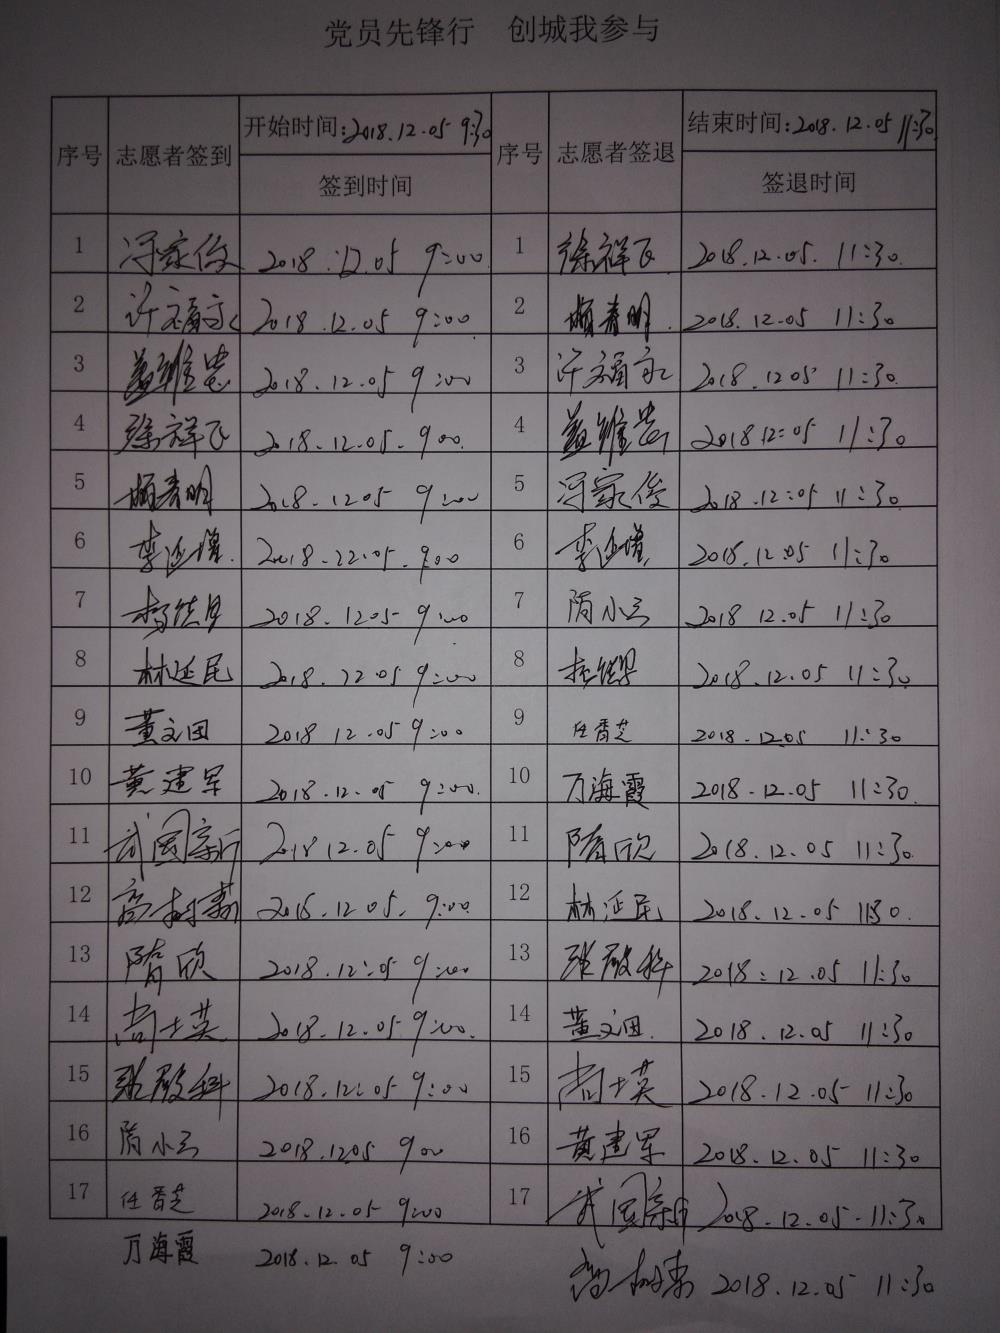 党员先锋行 创城我参与
序号 志愿者签到 开始时间:2018.12.05 9:30 序号 志愿者签退 结束时间:2018.12.05 11:30
签到时间 签退时间
1 冯家俊 2018.12.05 9:00 1 徐祥飞 2018.12.05. 11:30
2 许福永 2018.12.05 9:00 2 青明 2018.12.05 11:30
3 维忠 2018.12.05 9:00 3 许福永 2018.1205 11:30
4 徐祥飞 2018.12.05. 9:00 4 维忠 2018 12:05 11:30
5 青明 2018.1205 9:00 5 冯家俊 2018.12:05 11:30
6 李延增 2018.22.05. 9:00 6 李延增 2018.12.05 11:30
7 杨 2018.1205 9:00 7 隋小云 2018 12.05 11:30
8 林延民 2018.2205 9:00 8 2018.12.05 11:30
9 董文田 2018 12.05 9:00 9 任香芝 2018.12.05 11:30
10 黄建军 2018.12.05 9:00. 10 万海霞 2018.12.05 11:30.
11 武国新 2018 12.05 9:00 11 隋欣 2018.12.05 11:30.
12 高树 2018.12 05. 9:00 12 林延民 2018.12.05 1130.
13 隋欣 2018.12:05 9:00 13 张殿科 2018:12.05 11:30
14 尚士英 2018.12.05 9:00. 14 董文田 2018.12.05 11:30
15 张殿科 2018.12:05 9:00 15 尚士英 2018.12.05 11:30
16 隋小云 2018.1205 9:00 16 黄建军 2018.12.05 11:30
17 任香芝 2018.12.05 9:00 17 武国新 2018.12.05.11:30
万海霞 2018.12.05 9:00
高树 2018.12.05 11:30